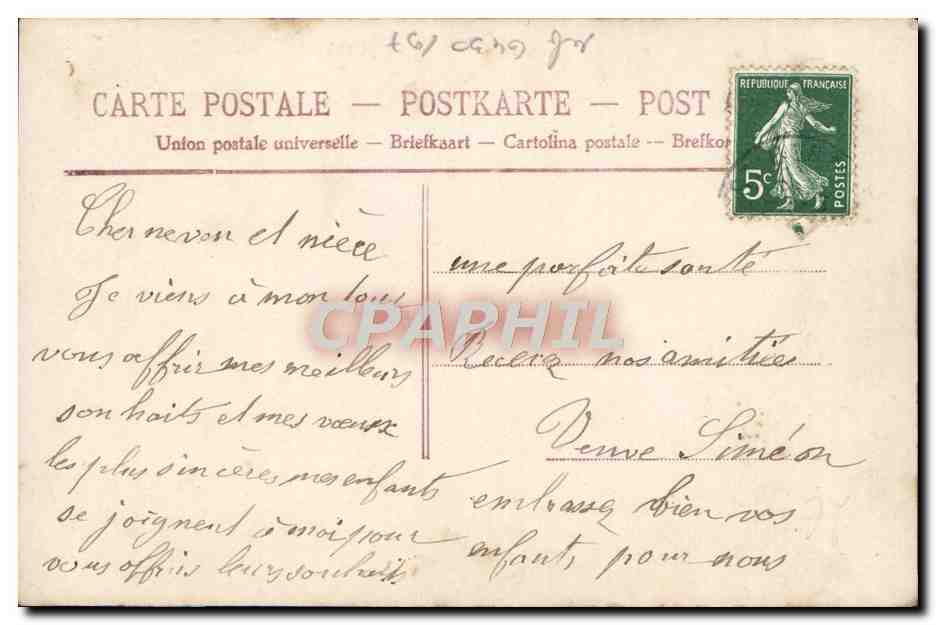 CARTE POSTALE — POSTKARTE — POST
Union postale universelle — Briefkaart — Cartolina postale -- Brefkor
REPUBLIQUE FRANÇAISE
5c
POSTES
Cher neveu et nièce
Je viens à mon tour
vous offrir mes meilleurs
souhaits et mes vœux
les plus sincères mes enfants
se joignent à moi pour
vous offrir leurs souhaits
une parfaite santé
Recevez nos amitiées
Veuve Siméon
embrassez bien vos
enfants pour nous
CPAPHIL